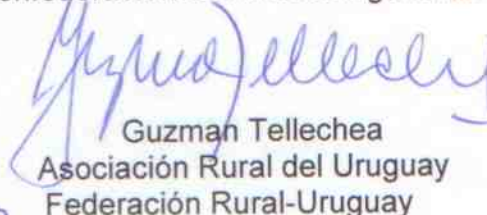 Guzman Tellechea
Guzman Tellechea
Asociación Rural del Uruguay
Federación Rural-Uruguay